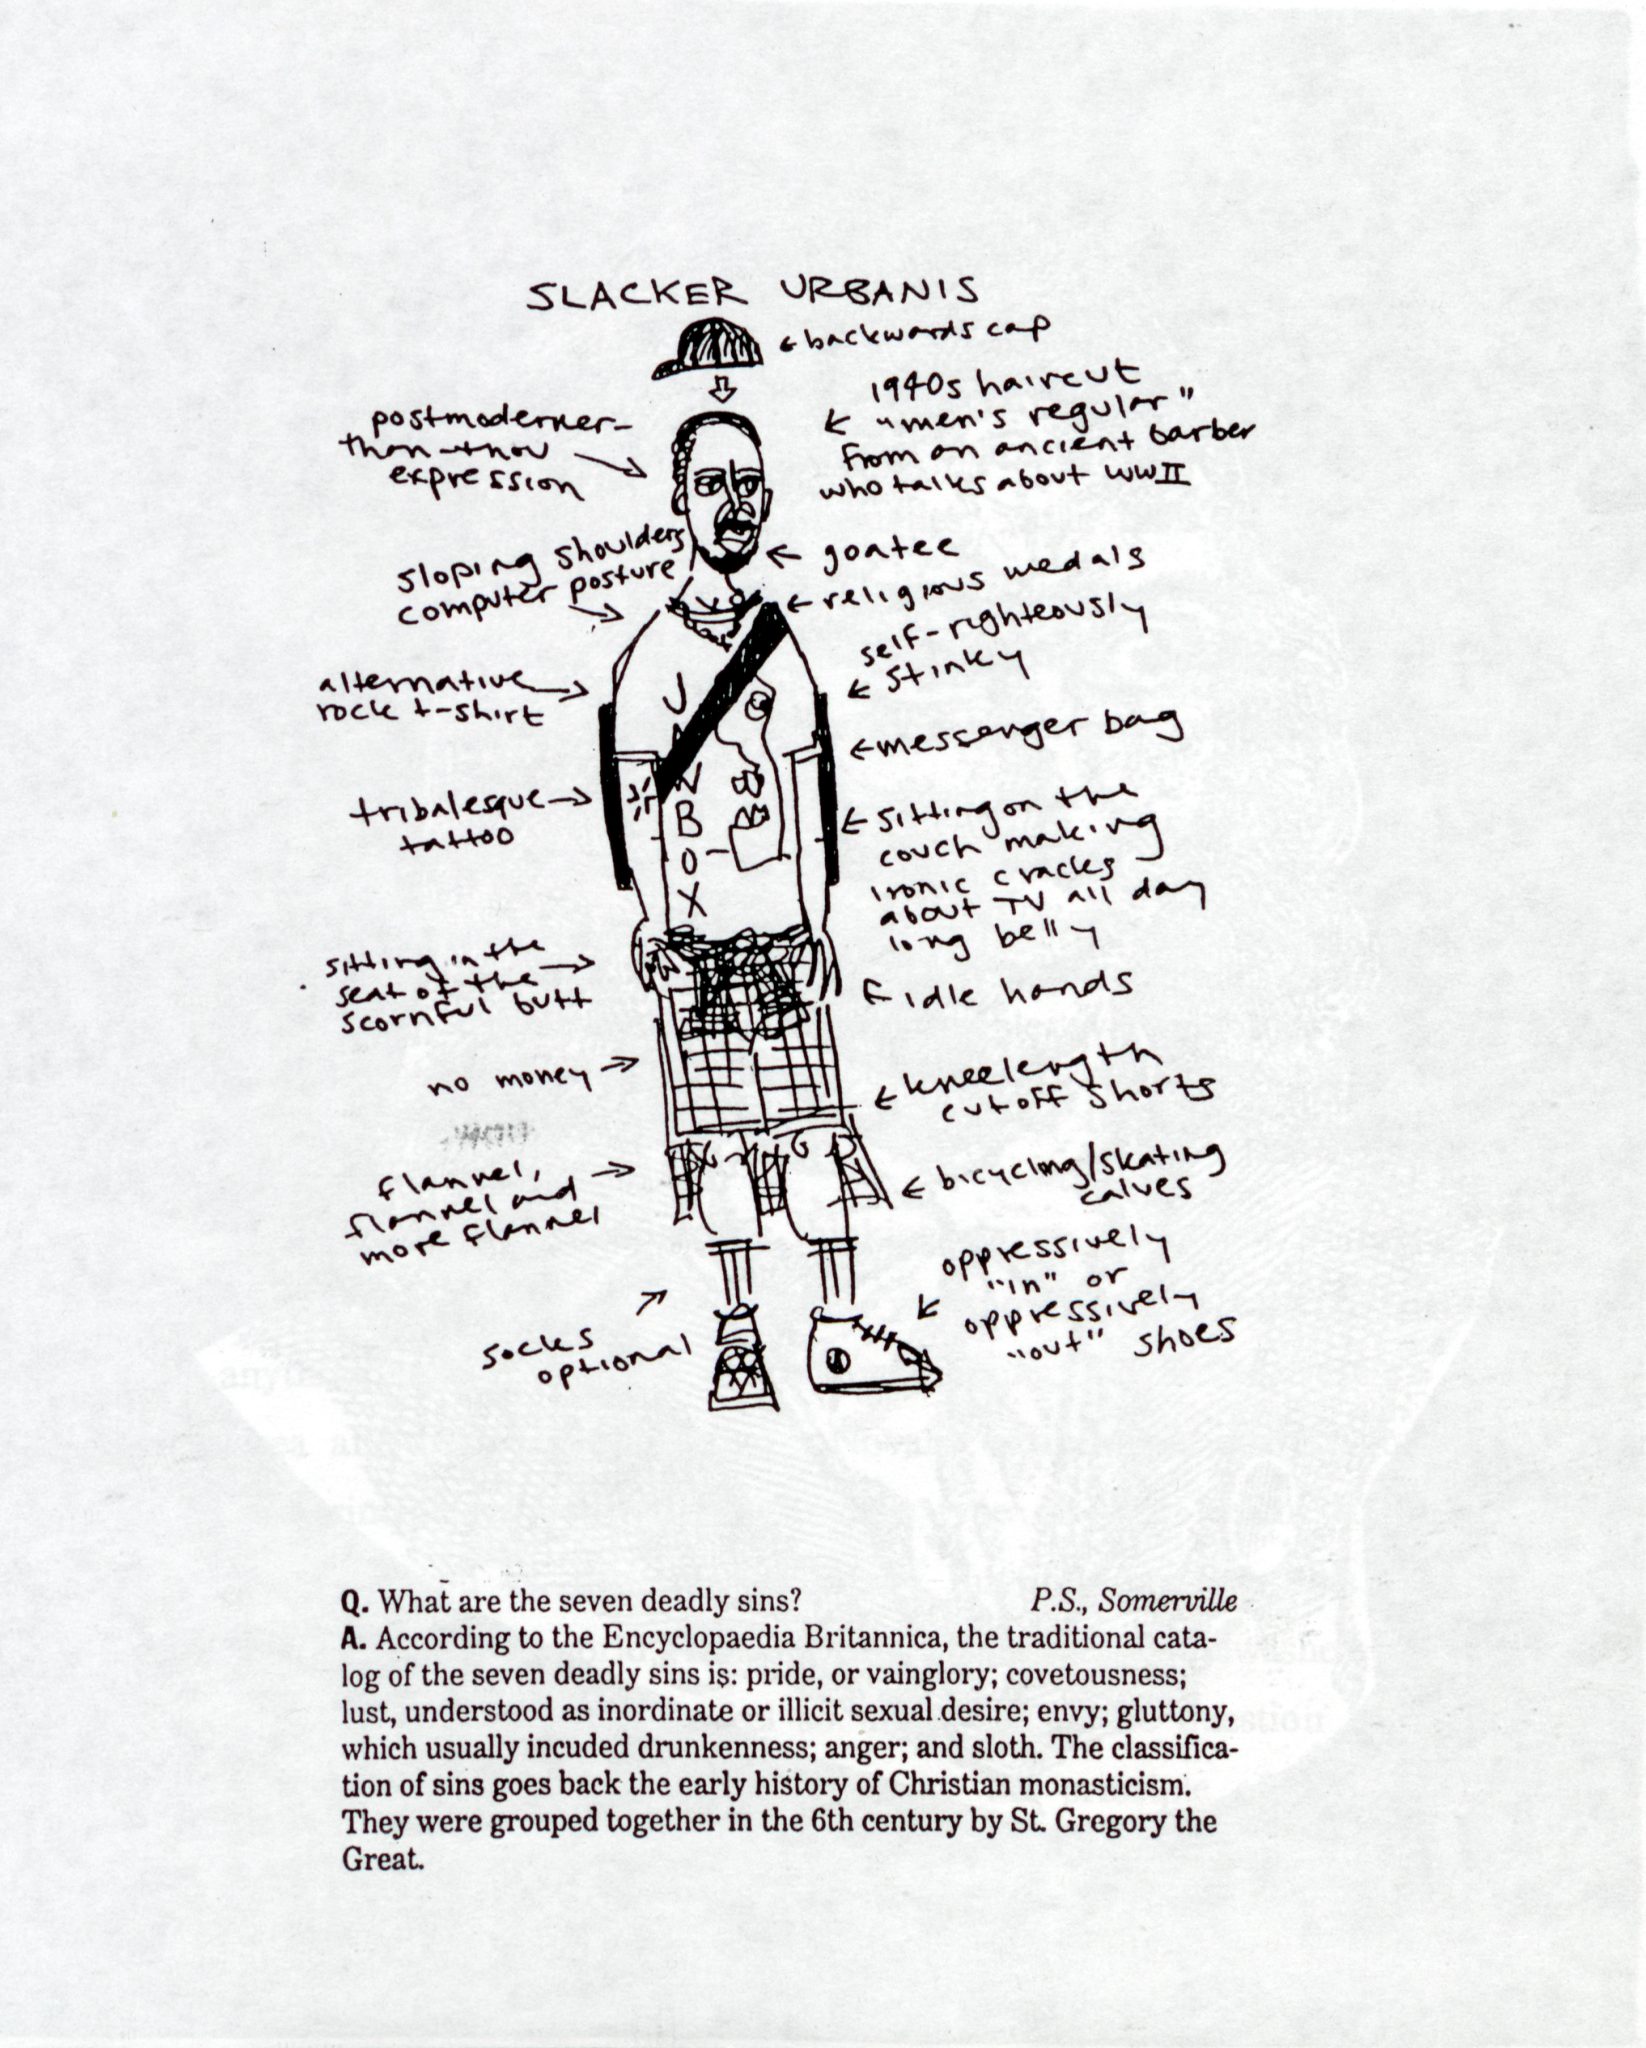 SLACKER URBANIS
←backwards cap
1940s haircut
← "men's regular"
from an ancient barber
who talks about WWII
postmoderner-
than-thou →
expression
sloping shoulders
computer posture
→
← goatee
← religious medals
self-righteously
← stinky
alternative →
rock t-shirt
← messenger bag
tribalesque →
tattoo
← sitting on the
couch making
ironic cracks
about TV all day
long belly
sitting in the
seat of the →
scornful butt
← idle hands
no money →
← kneelength
cutoff shorts
flannel, →
flannel and
more flannel
← bicycling/skating
calves
oppressively
← "in" or
oppressively
"out" shoes
→
socks
optional
J
N
B
O
X
Q. What are the seven deadly sins? P.S., Somerville
A. According to the Encyclopaedia Britannica, the traditional cata-
log of the seven deadly sins is: pride, or vainglory; covetousness;
lust, understood as inordinate or illicit sexual desire; envy; gluttony,
which usually incuded drunkenness; anger; and sloth. The classifica-
tion of sins goes back the early history of Christian monasticism.
They were grouped together in the 6th century by St. Gregory the
Great.